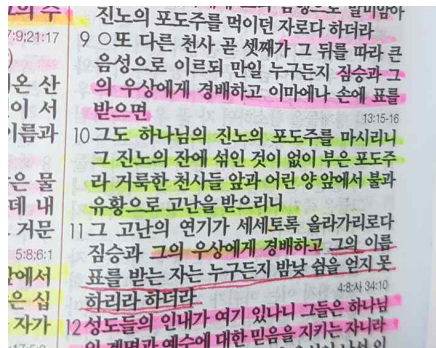 진노의 포도주를 먹이던 자로다 하더라
9 ○또 다른 천사 곧 셋째가 그 뒤를 따라 큰
음성으로 이르되 만일 누구든지 짐승과 그
의 우상에게 경배하고 이마에나 손에 표를
받으면
13:15-16
10 그도 하나님의 진노의 포도주를 마시리니
그 진노의 잔에 섞인 것이 없이 부은 포도주
라 거룩한 천사들 앞과 어린 양 앞에서 불과
유황으로 고난을 받으리니
11 그 고난의 연기가 세세토록 올라가리로다
짐승과 그의 우상에게 경배하고 그의 이름
표를 받는 자는 누구든지 밤낮 쉼을 얻지 못
하리라 하더라
4:8;사 34:10
12 성도들의 인내가 여기 있나니 그들은 하나님
의 계명과 예수에 대한 믿음을 지키는 자니라
7:9;21:17
온 산
이 서
이름과
은 물
데 내
거문
5:8;6:1
앞에서
은 십
자가